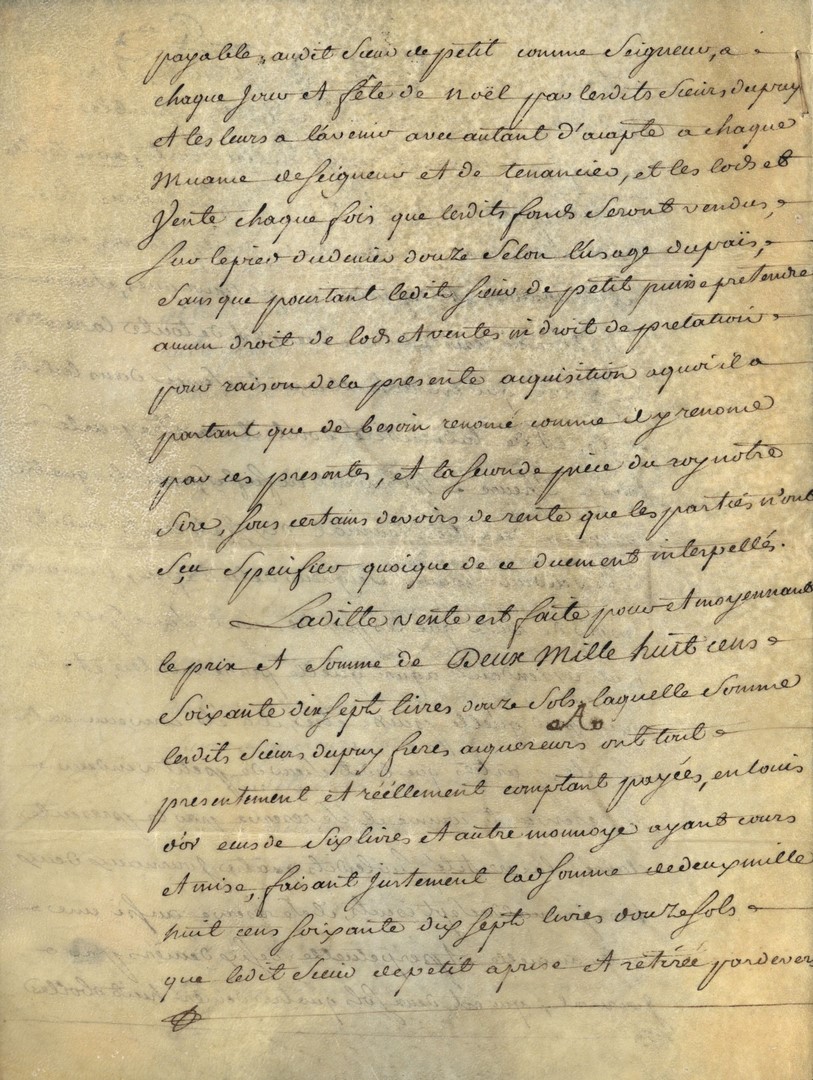 payable, audit sieur de petit comme Seigneur, a
chaque Jour et fête de noël par lesdits sieurs dupuy
et les leurs a l'avenir avec autant d'acapte a chaque
Muance de seigneur et de tenancier, et les lods et
Vente chaque fois que lesdits fonds Seront vendus,
sur le pied du denier douze Selon l'usage du païs,
Sans que pourtant ledit sieur de petit puisse pretendre
aucun droit de lods et ventes ni droit de prelation
pour raison dela presente acquisition aquoi il a
partant que de besoin renoncé comme il y renonce
par ces presentes, et la seconde piéce du roy nôtre
Sire, sous certains devoirs de rente que les parties n'ont
Sçu Specifier quoique de ce duement interpellés.
Laditte vente est faite pour et moyennant
le prix et somme de Deux Mille huit cens
Soixante dix sept livres douze sols, laquelle somme
lesdits sieurs dupuy freres acquereurs ont tout
presentement et réëllement comptant payées, en louis
d'or ecus de six livres et autre monnoye ayant cours
et mise, faisant justement lad somme de deux mille
huit cens soixante dix sept livres douze sols
que ledit sieur de petit a prise et retirée pardevers